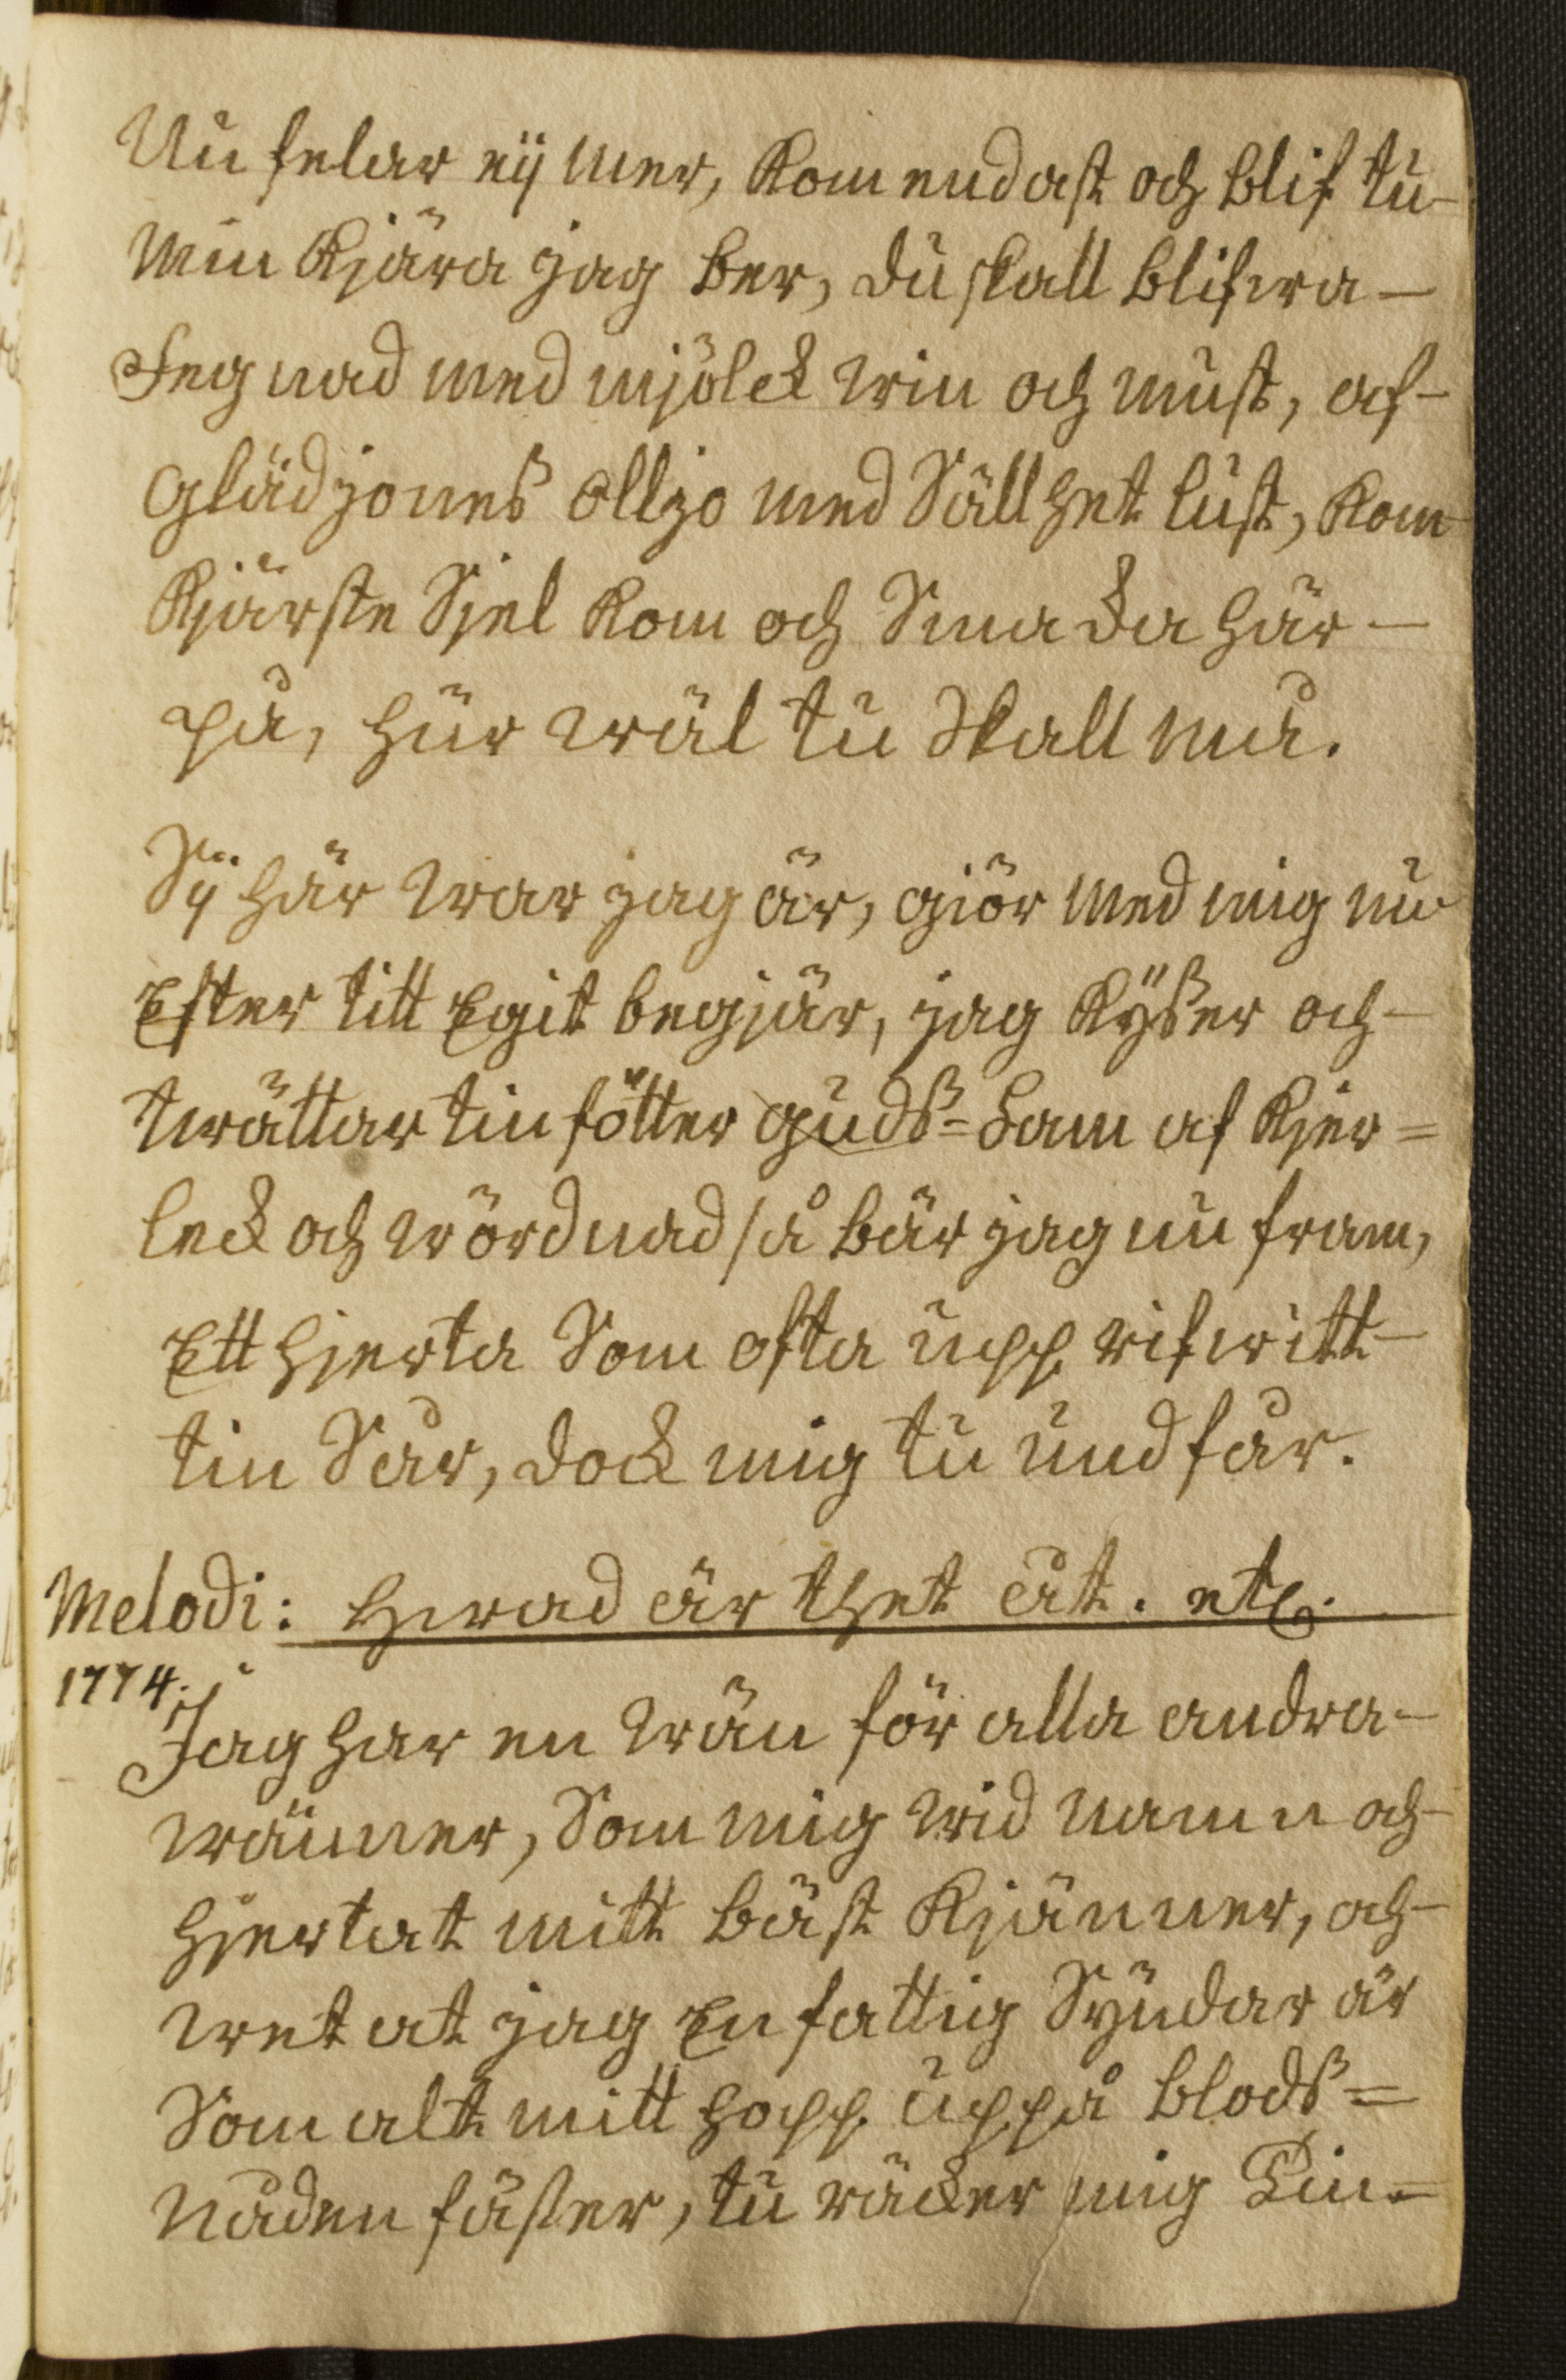 Nu felar eÿ mer, kom endast och blif tu
min kjära jag ber, du skall blifwa
Fegnad med mjölck win och must, af
glädjones olljo med Sällhet lust, kom
kjärste Sjel kom och Smacka här
på, hur wäl tu Skall må.
Sÿ här war jag är, giör med mig nu
Efter titt Egit begjär, jag kyßer och
twättar tin fötter guds=Lam af kjer=
leck och wördnad så bär jag nu fram,
Ett hjerta Som ofta upp rifwitt
tin Sår, dock mig tu undfår.
Melodi: Hwad är thet åt. etc.
1774.
Jag har en wän för alla andra
wänner, Som mig wid namn och
hjertat mitt bäst kjänner, och
wet at jag En fattig Syndar är
Som alt mitt hopp uppå blods=
nåden fäster, tu räcker mig Lin=